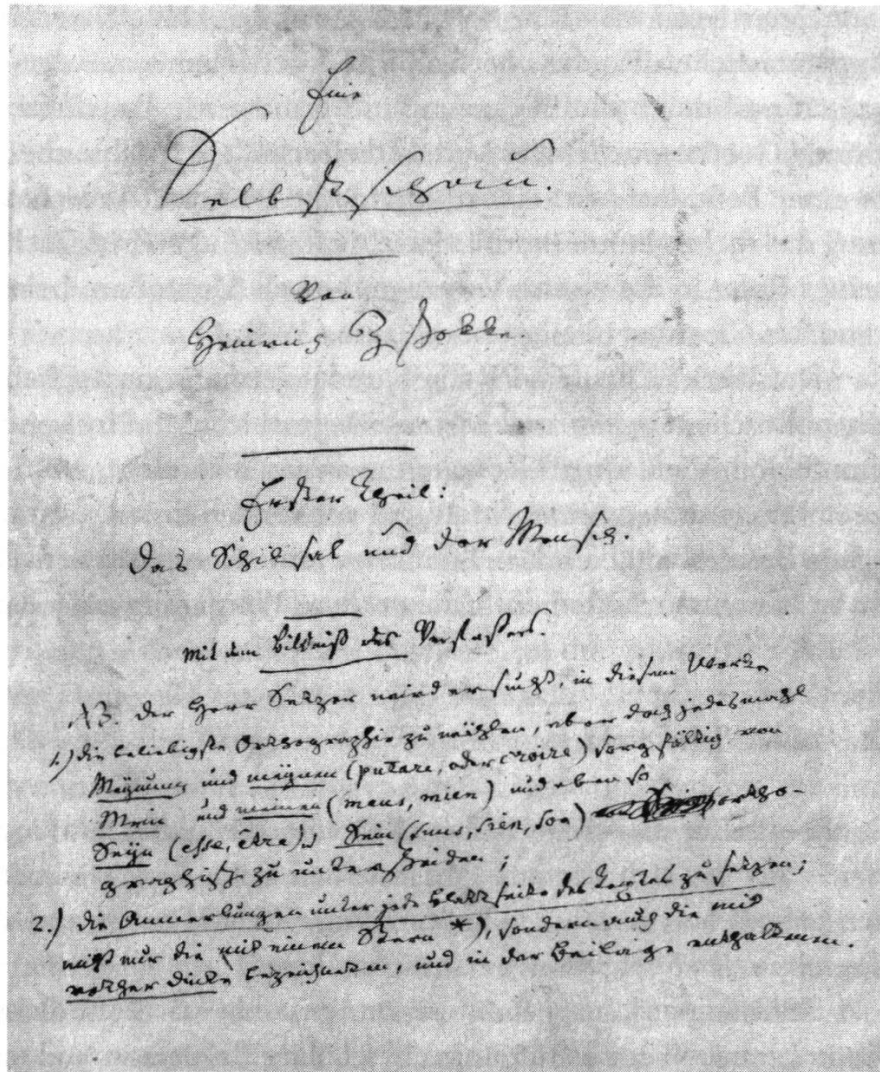 Eine
Selbstschau.
Von
Heinrich Zschokke
Erster Theil:
Das Schiksal und der Mensch.
Mit dem Bildniß des Verfassers.
NB. Der Herr Setzer wird ersucht, in diesem Werke
1.) die beliebigste Orthographie zu wählen, aber doch jedesmahl
Meynung und meynen (putare, oder croire) sorgfältig von
Mein und meinen (meus, mien) und eben so
Seyn (esse, être), Sein (suus, sien, son) ortho-
graphisch zu unterscheiden;
2.) die Anmerkungen unter jede Blattseite des Textes zu setzen;
nicht nur die mit einem Stern *), sondern auch die mit
rother Dinte bezeichneten, und in der Beilage enthaltenen.